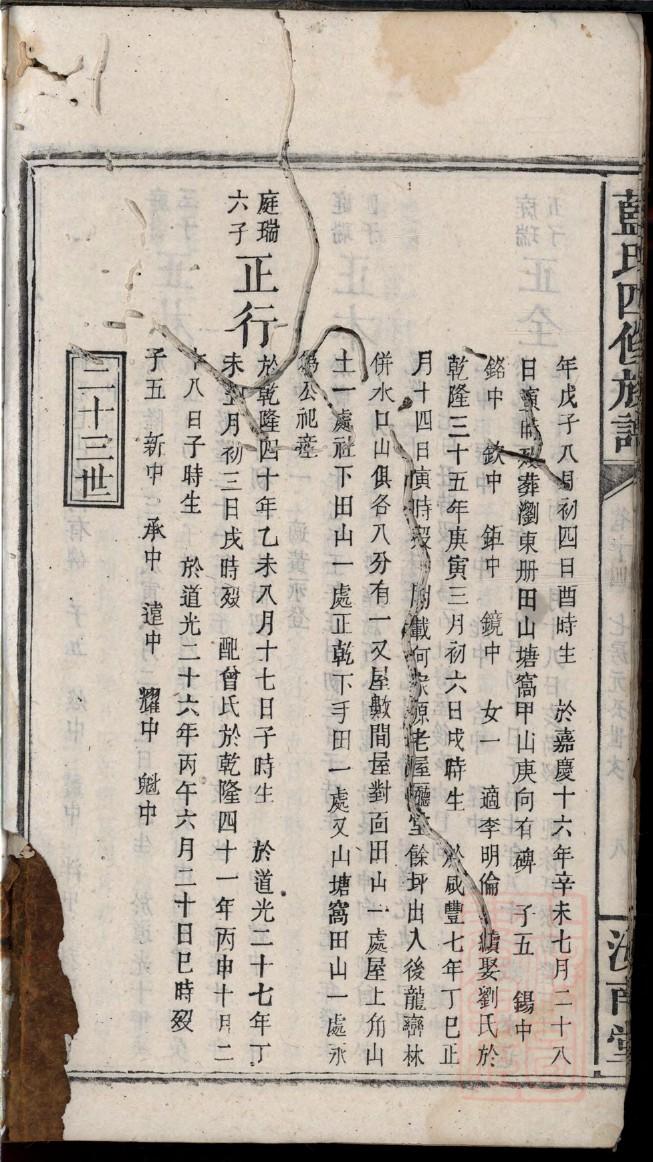 藍氏四修族譜
汝南堂
年戊子八月初四日酉時生 於嘉慶十六年辛未七月二十八
日寅時歿葬瀏東册田山塘窩甲山庚向有碑 子五 錫中
銘中 欽中 鉅中 鏡中 女一 適李明倫 續娶劉氏於
乾隆三十五年庚寅三月初六日戌時生 於咸豐七年丁巳正
月十四日寅時歿 載何家源老屋廳堂餘坪出入後龍巒林
併水口山俱各八分有一又屋數間屋對面田山一處屋上角山
土一處社下田山一處正乾下手田一處又山塘窩田山一處永
為公祀產
庭瑞六子 正行
於乾隆四十年乙未八月十七日子時生 於道光二十七年丁
未五月初三日戌時歿 配曾氏於乾隆四十一年丙申十月二
十八日子時生 於道光二十六年丙午六月二十日巳時歿
子五 新中 承中 遠中 耀中 魁中
二十三世